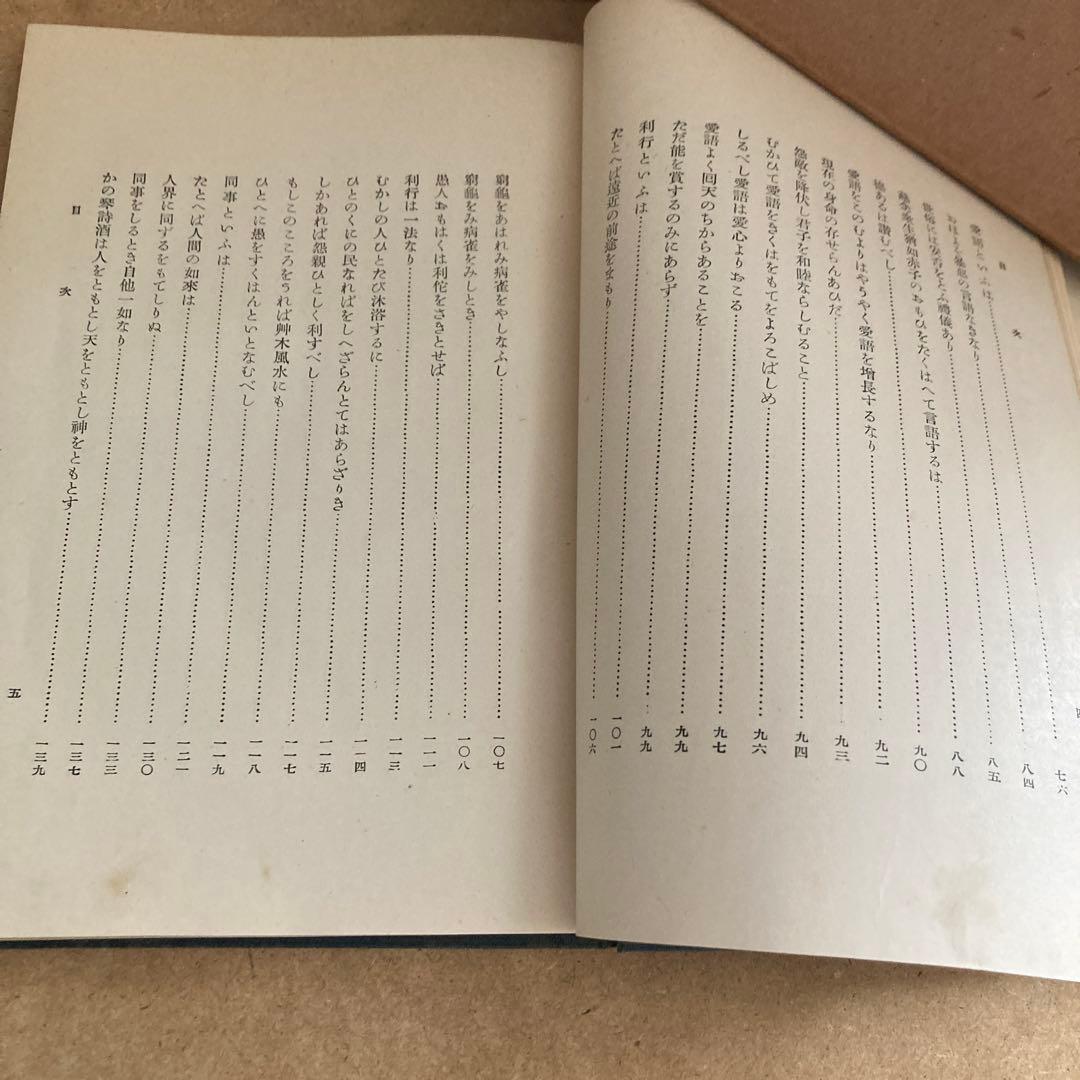 目次
愛語といふは……七六
おほよそ暴惡の言語なきなり……八四
世俗には安否をとふ禮儀あり……八五
慈念衆生猶如赤子のおもひをたくはへて言語するは……八八
德あるは讚むべし……九〇
愛語をこのむよりはやうやく愛語を增長するなり……九二
現在の身命の存せらんあひだ……九三
怨敵を降伏し君子を和睦ならしむること……九四
むかひて愛語をきくはをもてをよろこばしめ……九六
しるべし愛語は愛心よりおこる……九七
愛語よく回天のちからあることを……九九
ただ能を賞するのみにあらず……九九
利行といふは……一〇一
たとへば遠近の前途をまもり……一〇六
窮龜をあはれみ病雀をやしなふし……一〇七
窮龜をみ病雀をみしとき……一〇八
愚人おもはくは利佗をさきとせば……一一一
利行は一法なり……一一三
むかしの人ひとたび沐浴するに……一一四
ひとのくにの民なればをしへざらんとてはあらざりき……一一五
しかあれば怨親ひとしく利すべし……一一七
もしこのこころをうれば艸木風水にも……一一八
ひとへに愚をすくはんといとなむべし……一一九
同事といふは……一二一
たとへば人間の如來は……一三〇
人界に同ずるをもてしりぬ……一三三
同事をしるとき自他一如なり……一三七
かの琴詩酒は人をともとし天をともとし神をともとす……一三九
目次
五